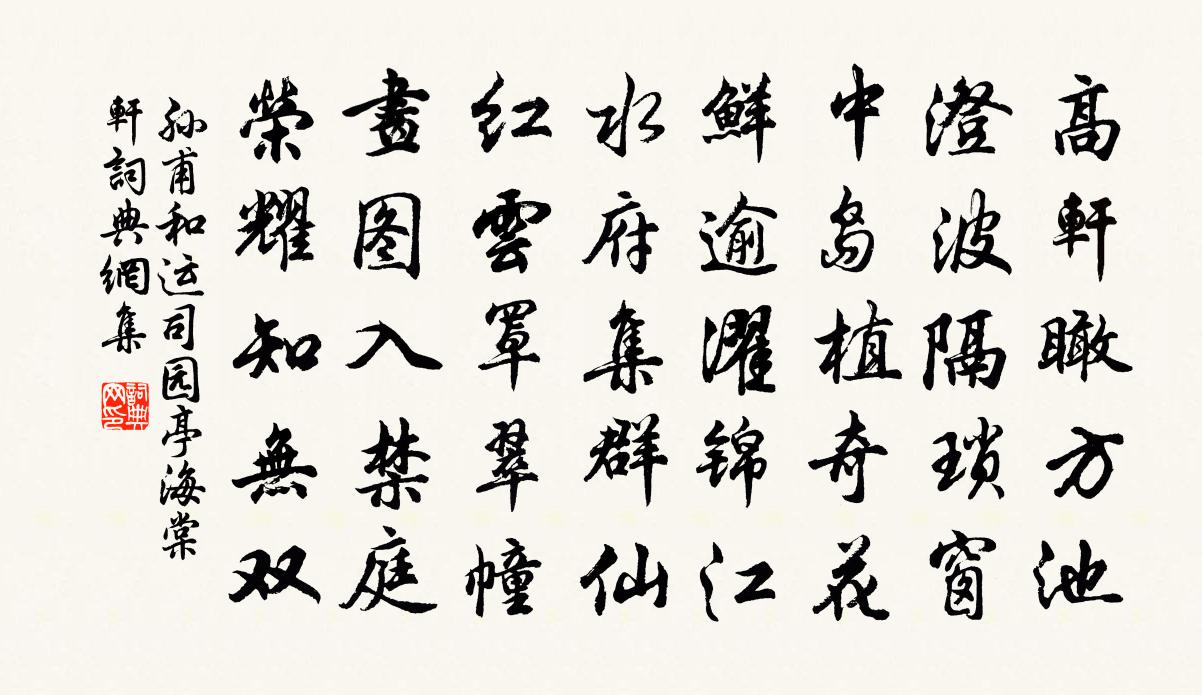 高軒瞰方池
澄波隔瑣窗
中岛植奇花
鮮逾濯锦江
水府集群仙
红雲罩翠幢
畫图入禁庭
榮耀知無双
孙甫和运司园亭海棠
軒詞典網集
詞典网印